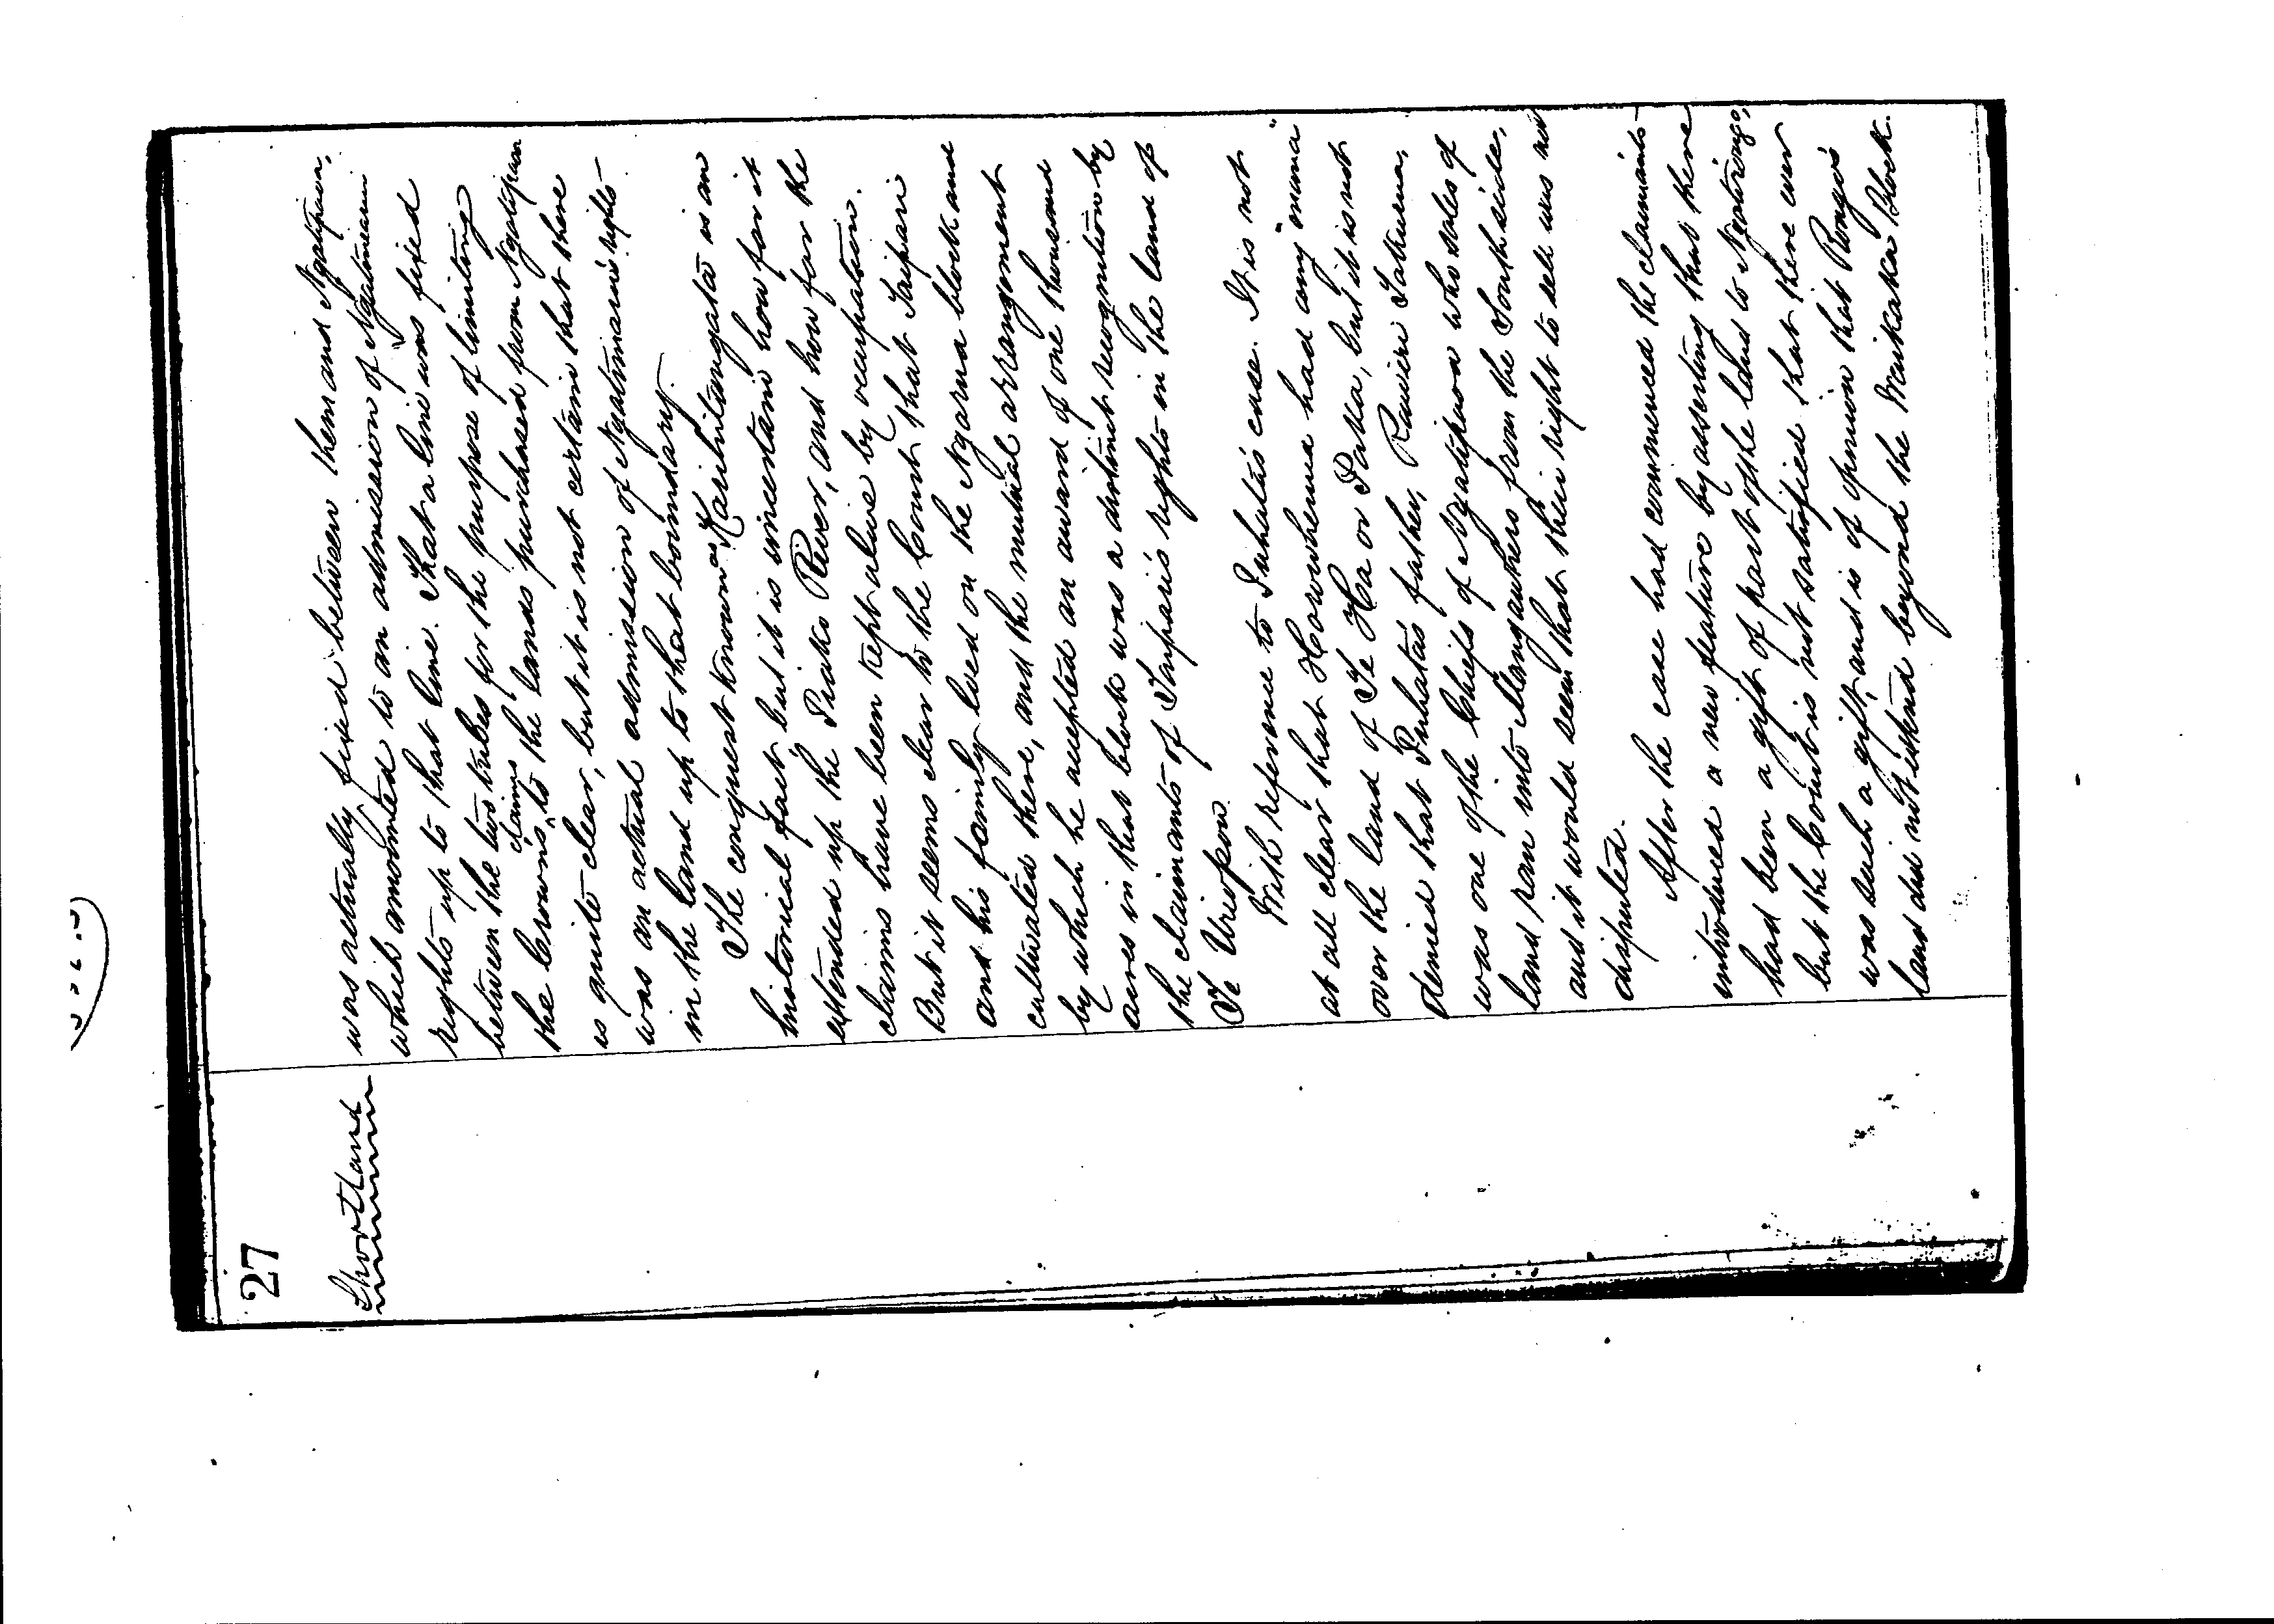 27
Shortland
was actually fixed between them and Ngatipaoa,
which amounted to an admission of Ngatimaru
rights up to that line. That a line was fixed
between the two tribes for the purpose of limiting
the Crown's claims to the lands purchased from Ngatipaoa
is quite clear, but it is not certain that there
was an actual admission of Ngatimaru's rights
in the land up to that boundary.
The conquest known as "Karihitangata" is an
historical fact but it is uncertain how far it
extended up the Piako River, and how far the
claims have been kept alive by occupation.
But it seems clear to the Court that Taipari
and his family lived on the Ngarua block and
cultivated there, and the mutual arrangement
by which he accepted an award of one thousand
acres in that block was a distinct recognition by
the claimants of Taipari's rights in the land of
Te Uriopou.
With reference to Puhata's case. It is not
at all clear that Horowhenua had any "mana"
over the land of Te Ha or Paka, but it is not
denied that Puhata's father, Rawiri Takurua,
was one of the Chiefs of Ngatipaoa who sales of
land ran into Mangauhero from the South side,
and it would seem that their right to sell was not
disputed.
After the case had commenced the claimants
introduced a new feature by asserting that there
had been a gift of part of the land to Ngatirongo,
but the Court is not satisfied that there ever
was such a gift, and is of opinion that Rongo's
land did not extend beyond the Waikaka Block.